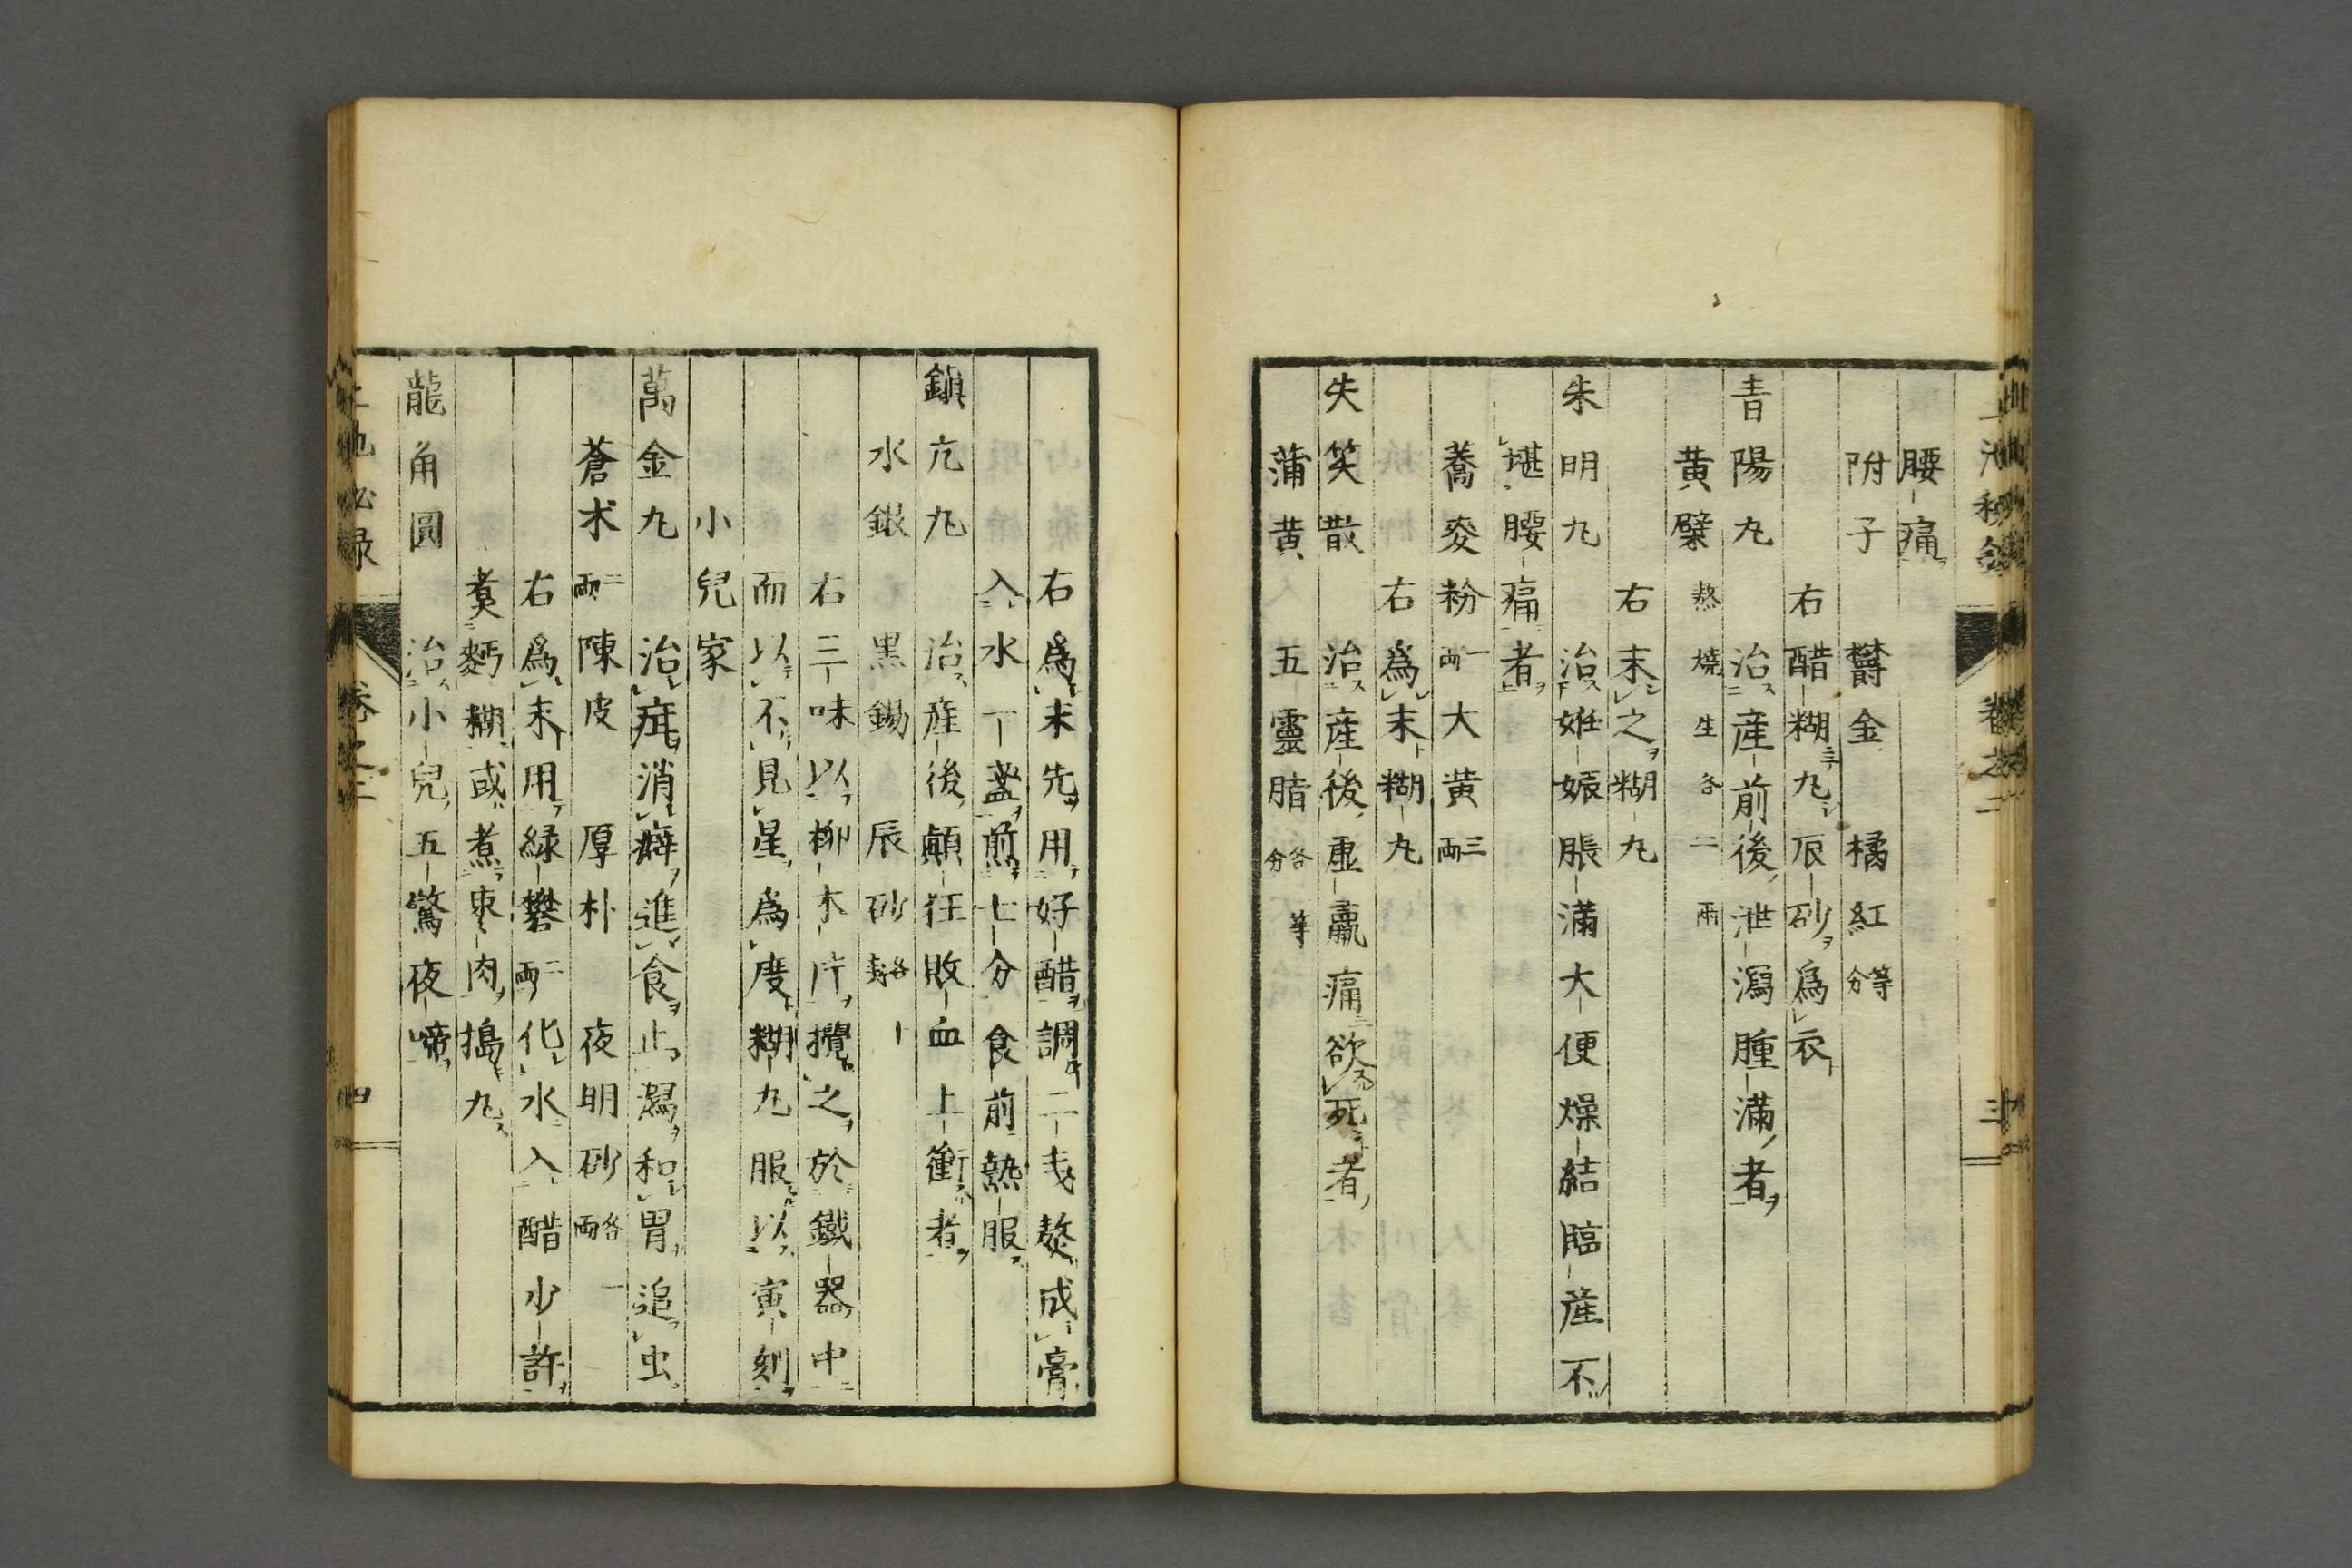 腰痛
附子 欝金 橘紅 等分
右醋糊丸辰砂爲衣
青陽丸 治産前後泄瀉腫滿者
黄檗 熬燒生各二兩
右末之糊丸
朱明丸 治姙娠脹滿大便燥結臨産不
堪腰痛者
蕎麥粉 一兩 大黄 三兩
右爲末糊丸
失笑散 治産後虚羸痛欲死者
蒲黄 五靈脂 各等分
卷之二 三
右爲末先用好醋調二戔熬成膏
入水一盞煎七分食前熱服
鎮亢丸 治産後顛狂敗血上衝者
水銀 黒錫 辰砂 各一戔
右三味以柳木片攪之於鐵器中
而以不見星爲度糊丸服以寅刻
小兒家
萬金丸 治疳消癖進食止瀉和胃追虫
蒼朮 二兩 陳皮 厚朴 夜明砂 各一兩
右爲末用緑礬 二兩 化水入醋少許
煮麪糊或煮棗肉搗丸
龍角圓 治小兒五驚夜啼
池必録 卷之二 四